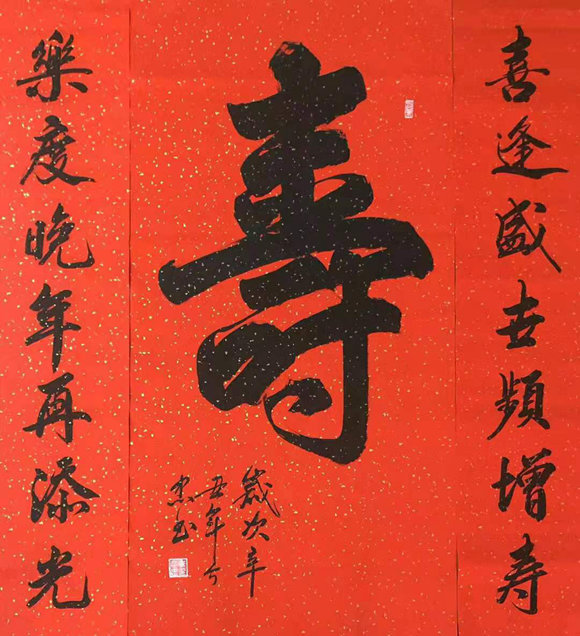 喜逢盛世頻增寿
壽
歲次辛
丑年
书
樂度晚年再添光